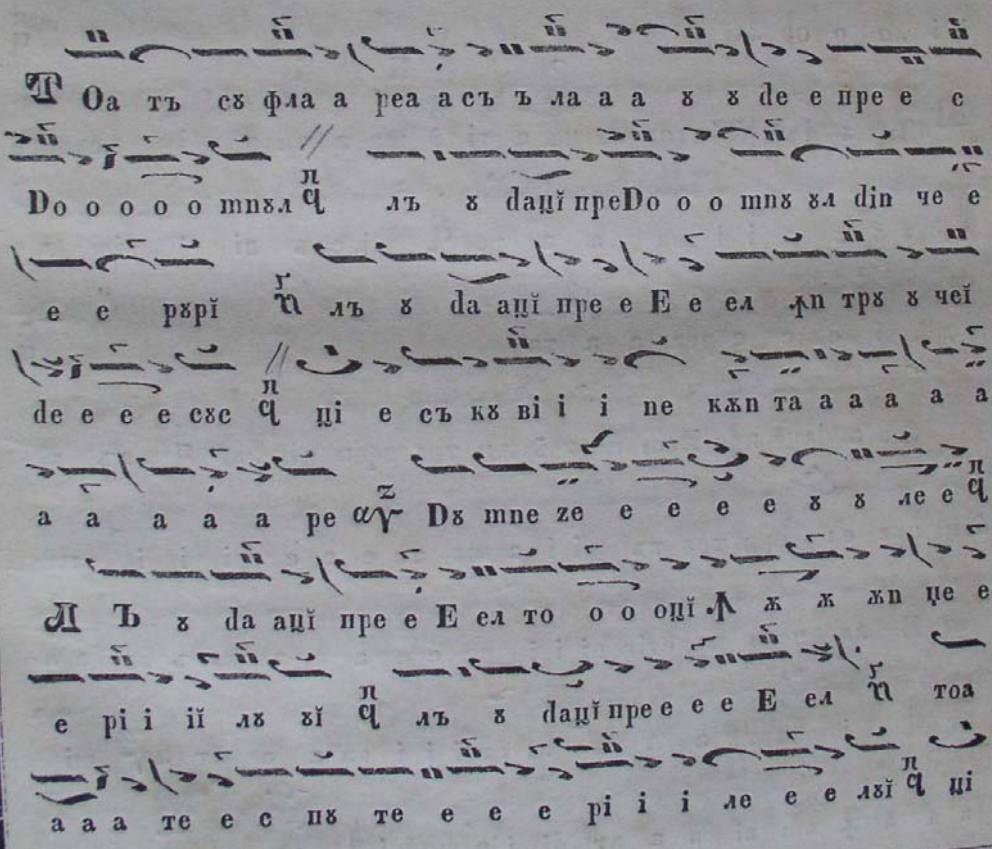 ТОа тъ сꙋ фла а реа а съ ъ ла а а ꙋ ꙋ de е пре е с
Do о о о о о mnꙋл лъ ꙋ daцĭ преDo о о mnꙋ ꙋл din че е
е е рꙋрĭ лъ ꙋ da ацĭ пре е Е е ел ꙟn трꙋ ꙋ чеĭ
de е е е е сꙋс ці е съ кꙋ ві і і пе кѫn та а а а а а
а а а а а ре Dꙋ mne zе е е е е ꙋ ꙋ ле е
ЛЪ ꙋ da ацĭ пре е Е ел то о о оцĭ .Ꙟ ѫ ѫ ѫn џе е
е рі і іĭ лꙋ ꙋĭ лъ ꙋ daцĭ пре е е е Е ел тоа
а а а те е с пꙋ те е е е рі і і ле е е лꙋĭ ці